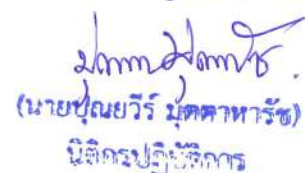 (นายปุณยวีร์ มุคตาหารัช)
นิติกรปฏิบัติการ